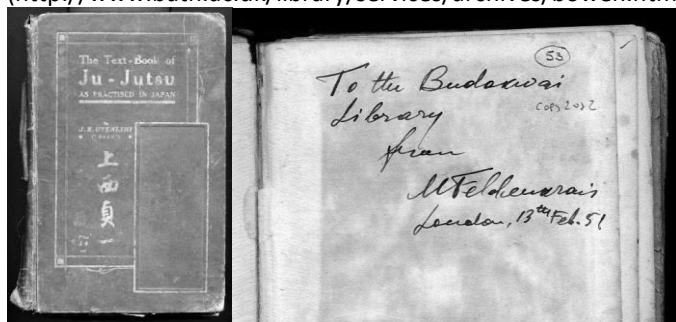 The Text-Book of
Ju-Jutsu
AS PRACTISED IN JAPAN
上
西
貞
一
53
To the Budokwai
Library
COPY 2 OF 2
from
M Feldenkrais
London, 13th Feb. 51